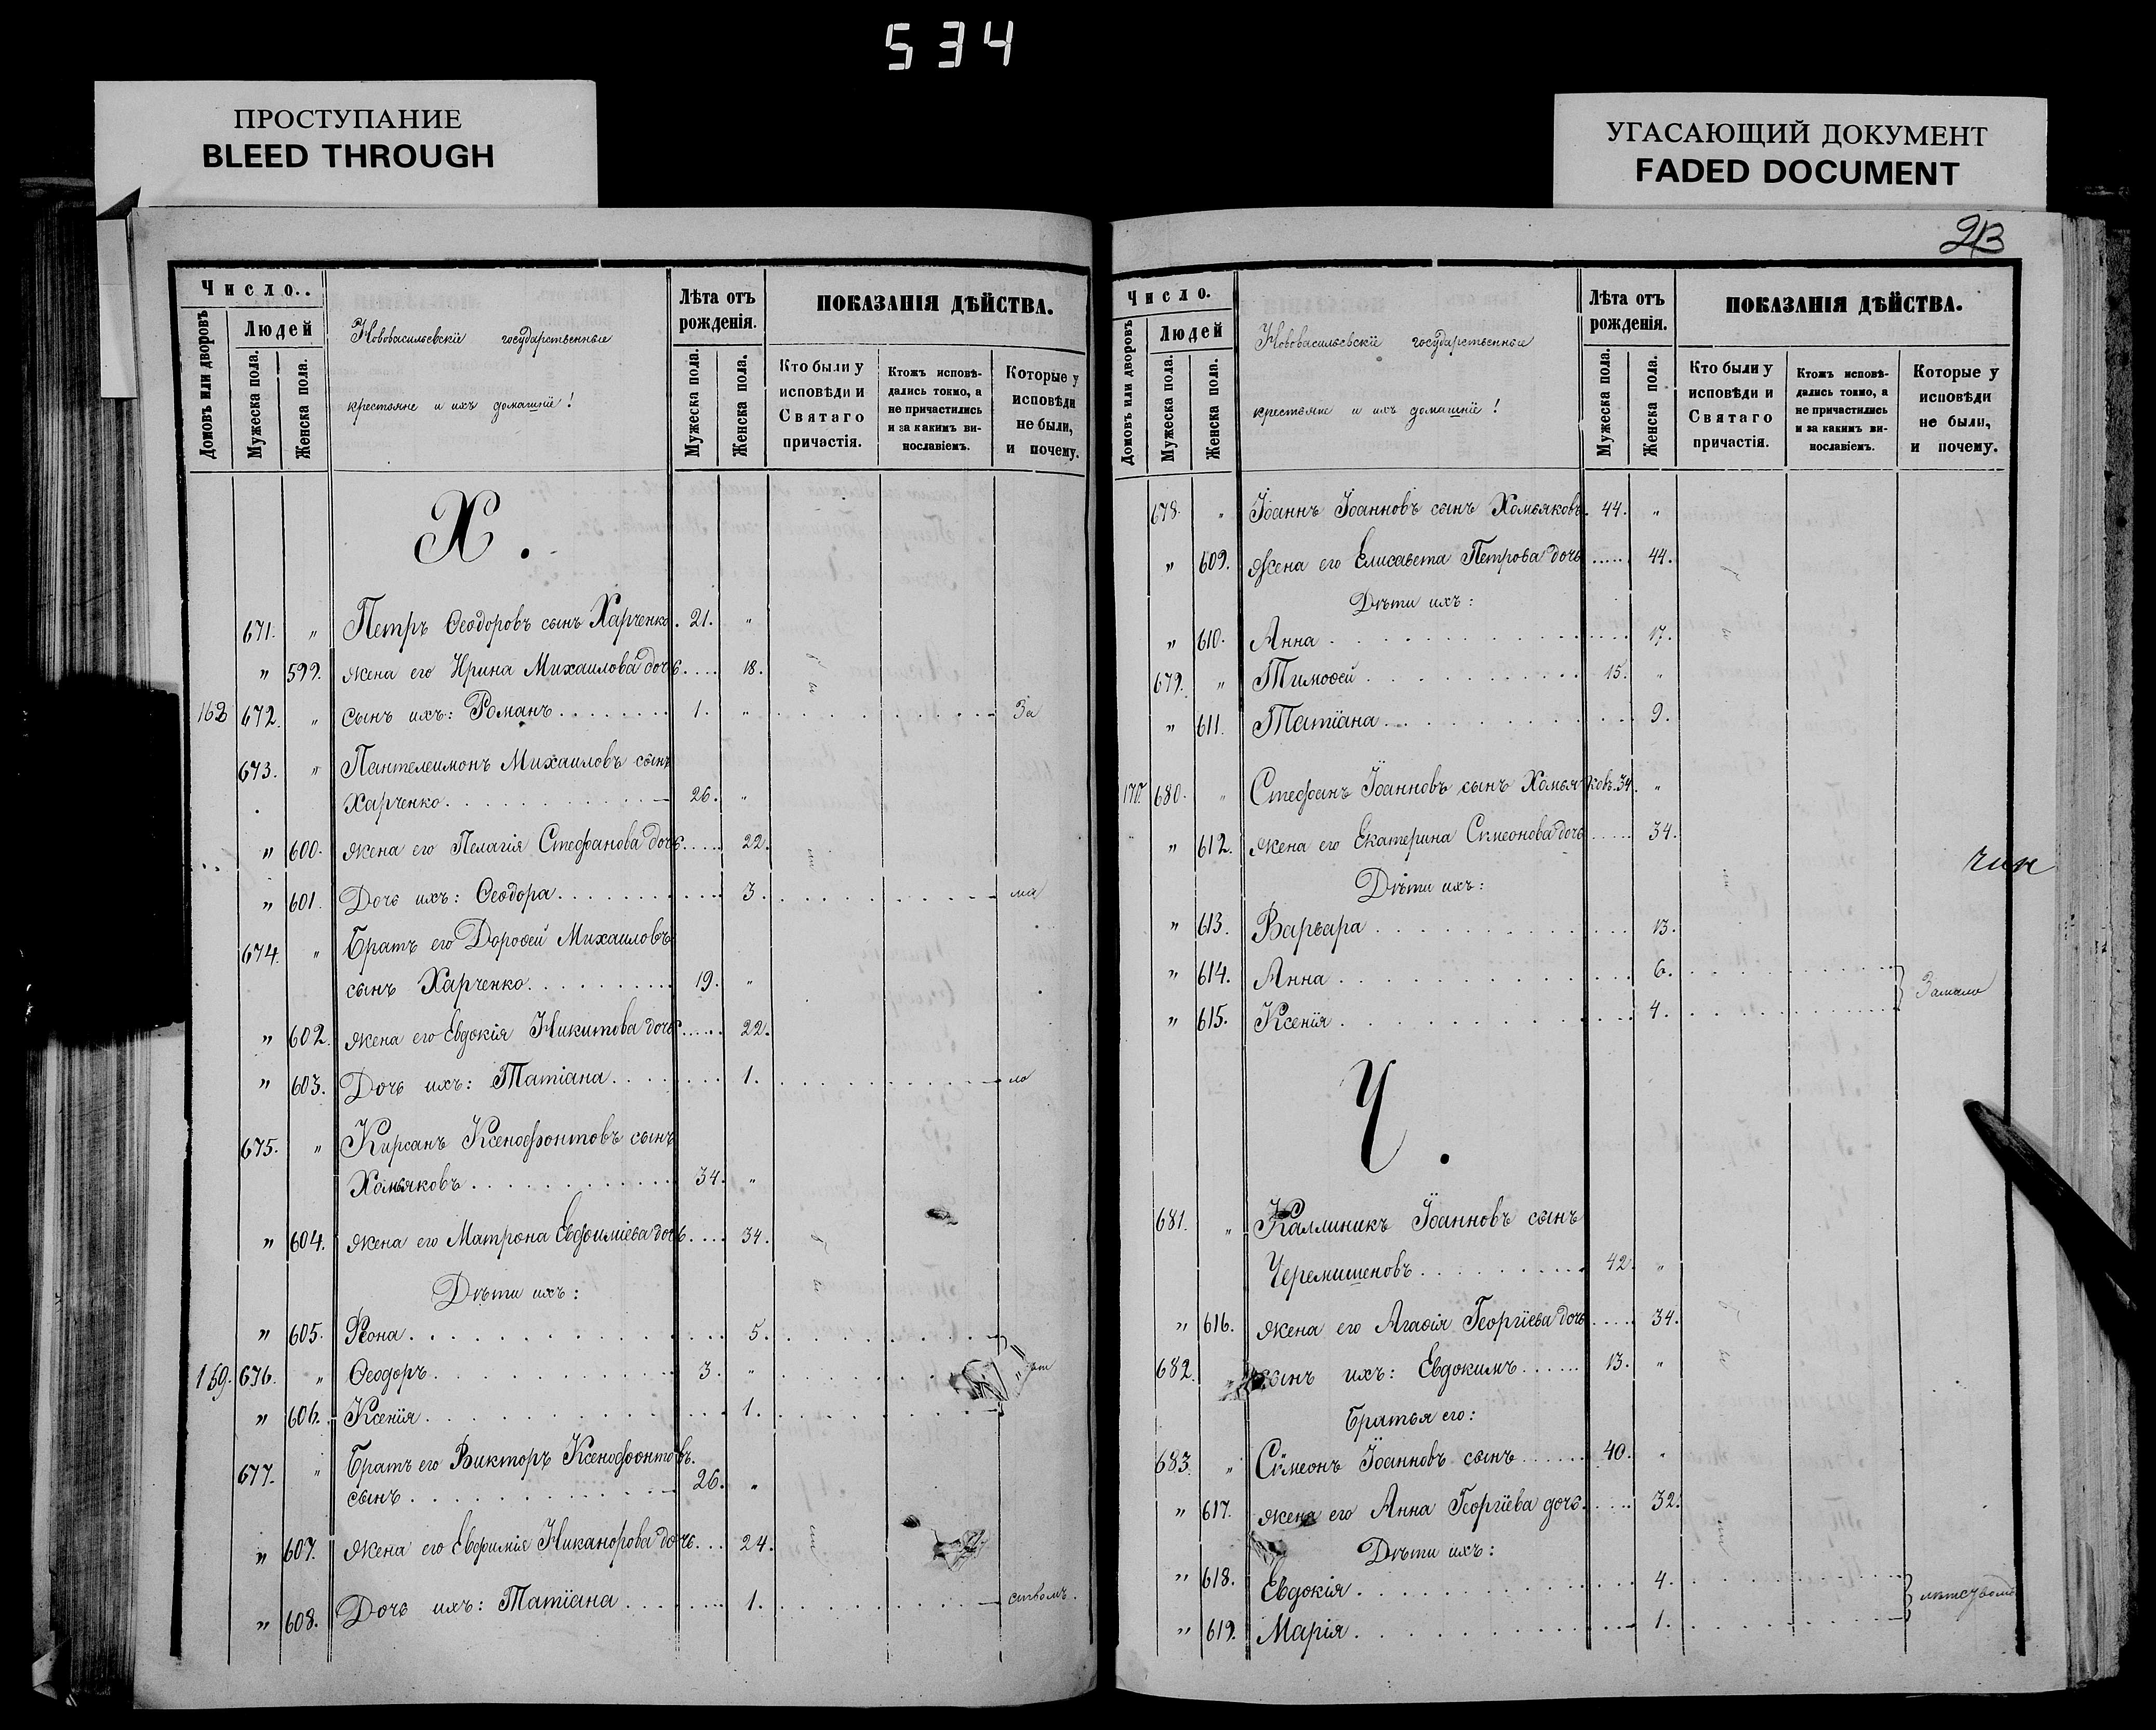 534
ПРОСТУПАНИЕ
BLEED THROUGH
УГАСАЮЩИЙ ДОКУМЕНТ
FADED DOCUMENT
Число..
Домовъ или дворовъ
Людей
Мужеска пола.
Женска пола.
Нововасильевскіе государственные
крестьяне и ихъ домашніе!
Лѣта отъ
рожденія.
Мужеска пола.
Женска пола.
ПОКАЗАНІЯ ДѢЙСТВА.
Кто были у
исповѣди и
Святаго
причастія.
Ктожъ исповѣ-
дались токмо, а
не причастились
и за какимъ ви-
нословіемъ.
Которые у
исповѣди
не были,
и почему.
Х.
671. " Петръ Ѳеодоровъ сынъ Харченко. 21. "
" 599. жена его Ирина Михаилова дочь.... 18.
168 672. " сынъ ихъ: Романъ........ 1. " За
673. " Пантелеимонъ Михаиловъ сынъ
Харченко........... 26. "
" 600. жена его Пелагія Стефанова дочь..... 22.
" 601. Дочь ихъ: Ѳеодора........ 3. ма
674. " Братъ его Дороѳей Михаиловъ
сынъ Харченко......... 19. "
" 602. жена его Евдокія Никитова дочь..... 22.
" 603. Дочь ихъ: Татіана....... 1. ло
675. " Кирсанъ Ксенофонтовъ сынъ
Хомьяковъ............ 34. "
" 604. жена его Матрона Евфиміева дочь.... 34.
Дѣти ихъ:
" 605. 5.
169. 676. " Ѳеодоръ............ 3. "
" 606. Ксенія............ 1.
677. " Братъ его Викторъ Ксенофонтовъ.
сынъ............ 26. "
" 607. жена его Евфимія Никанорова дочь... 24.
" 608. Дочь ихъ: Татіана....... 1. ствомъ.
213
Число.
Домовъ или дворовъ
Людей
Мужеска пола.
Женска пола.
Нововасильевскіе государственные
крестьяне и ихъ домашніе!
Лѣта отъ
рожденія.
Мужеска пола.
Женска пола.
ПОКАЗАНІЯ ДѢЙСТВА.
Кто были у
исповѣди и
Святаго
причастія.
Ктожъ исповѣ-
дались токмо, а
не причастились
и за какимъ ви-
нословіемъ.
Которые у
исповѣди
не были,
и почему.
678. " Іоаннъ Іоанновъ сынъ Хомьяковъ. 44. "
" 609. жена его Елисавета Петрова дочь ..... 44.
Дѣти ихъ:
" 610. Анна............ 17.
679. " Тимоѳей........... 15. "
" 611. Татіана........... 9.
170. 680. " Стефанъ Іоанновъ сынъ Хомьяковъ. 34. "
" 612. жена его Екатерина Сѵмеонова дочь ..... 34.
Дѣти ихъ:
" 613. Варвара........... 13.
" 614. Анна............ 6.
" 615. Ксенія............ 4.
Замало
Ч.
681. " Каллиникъ Іоанновъ сынъ
Черемшеновъ......... 42. "
" 616. жена его Агаѳія Георгіева дочь .... 34.
682. " сынъ ихъ: Евдокимъ...... 13. "
Братья его:
683. " Сѵмеонъ Іоанновъ сынъ...... 40. "
" 617. жена его Анна Георгіева дочь..... 32.
Дѣти ихъ:
" 618. Евдокія............ 4.
" 619. Марія............ 1.
лѣтствомъ